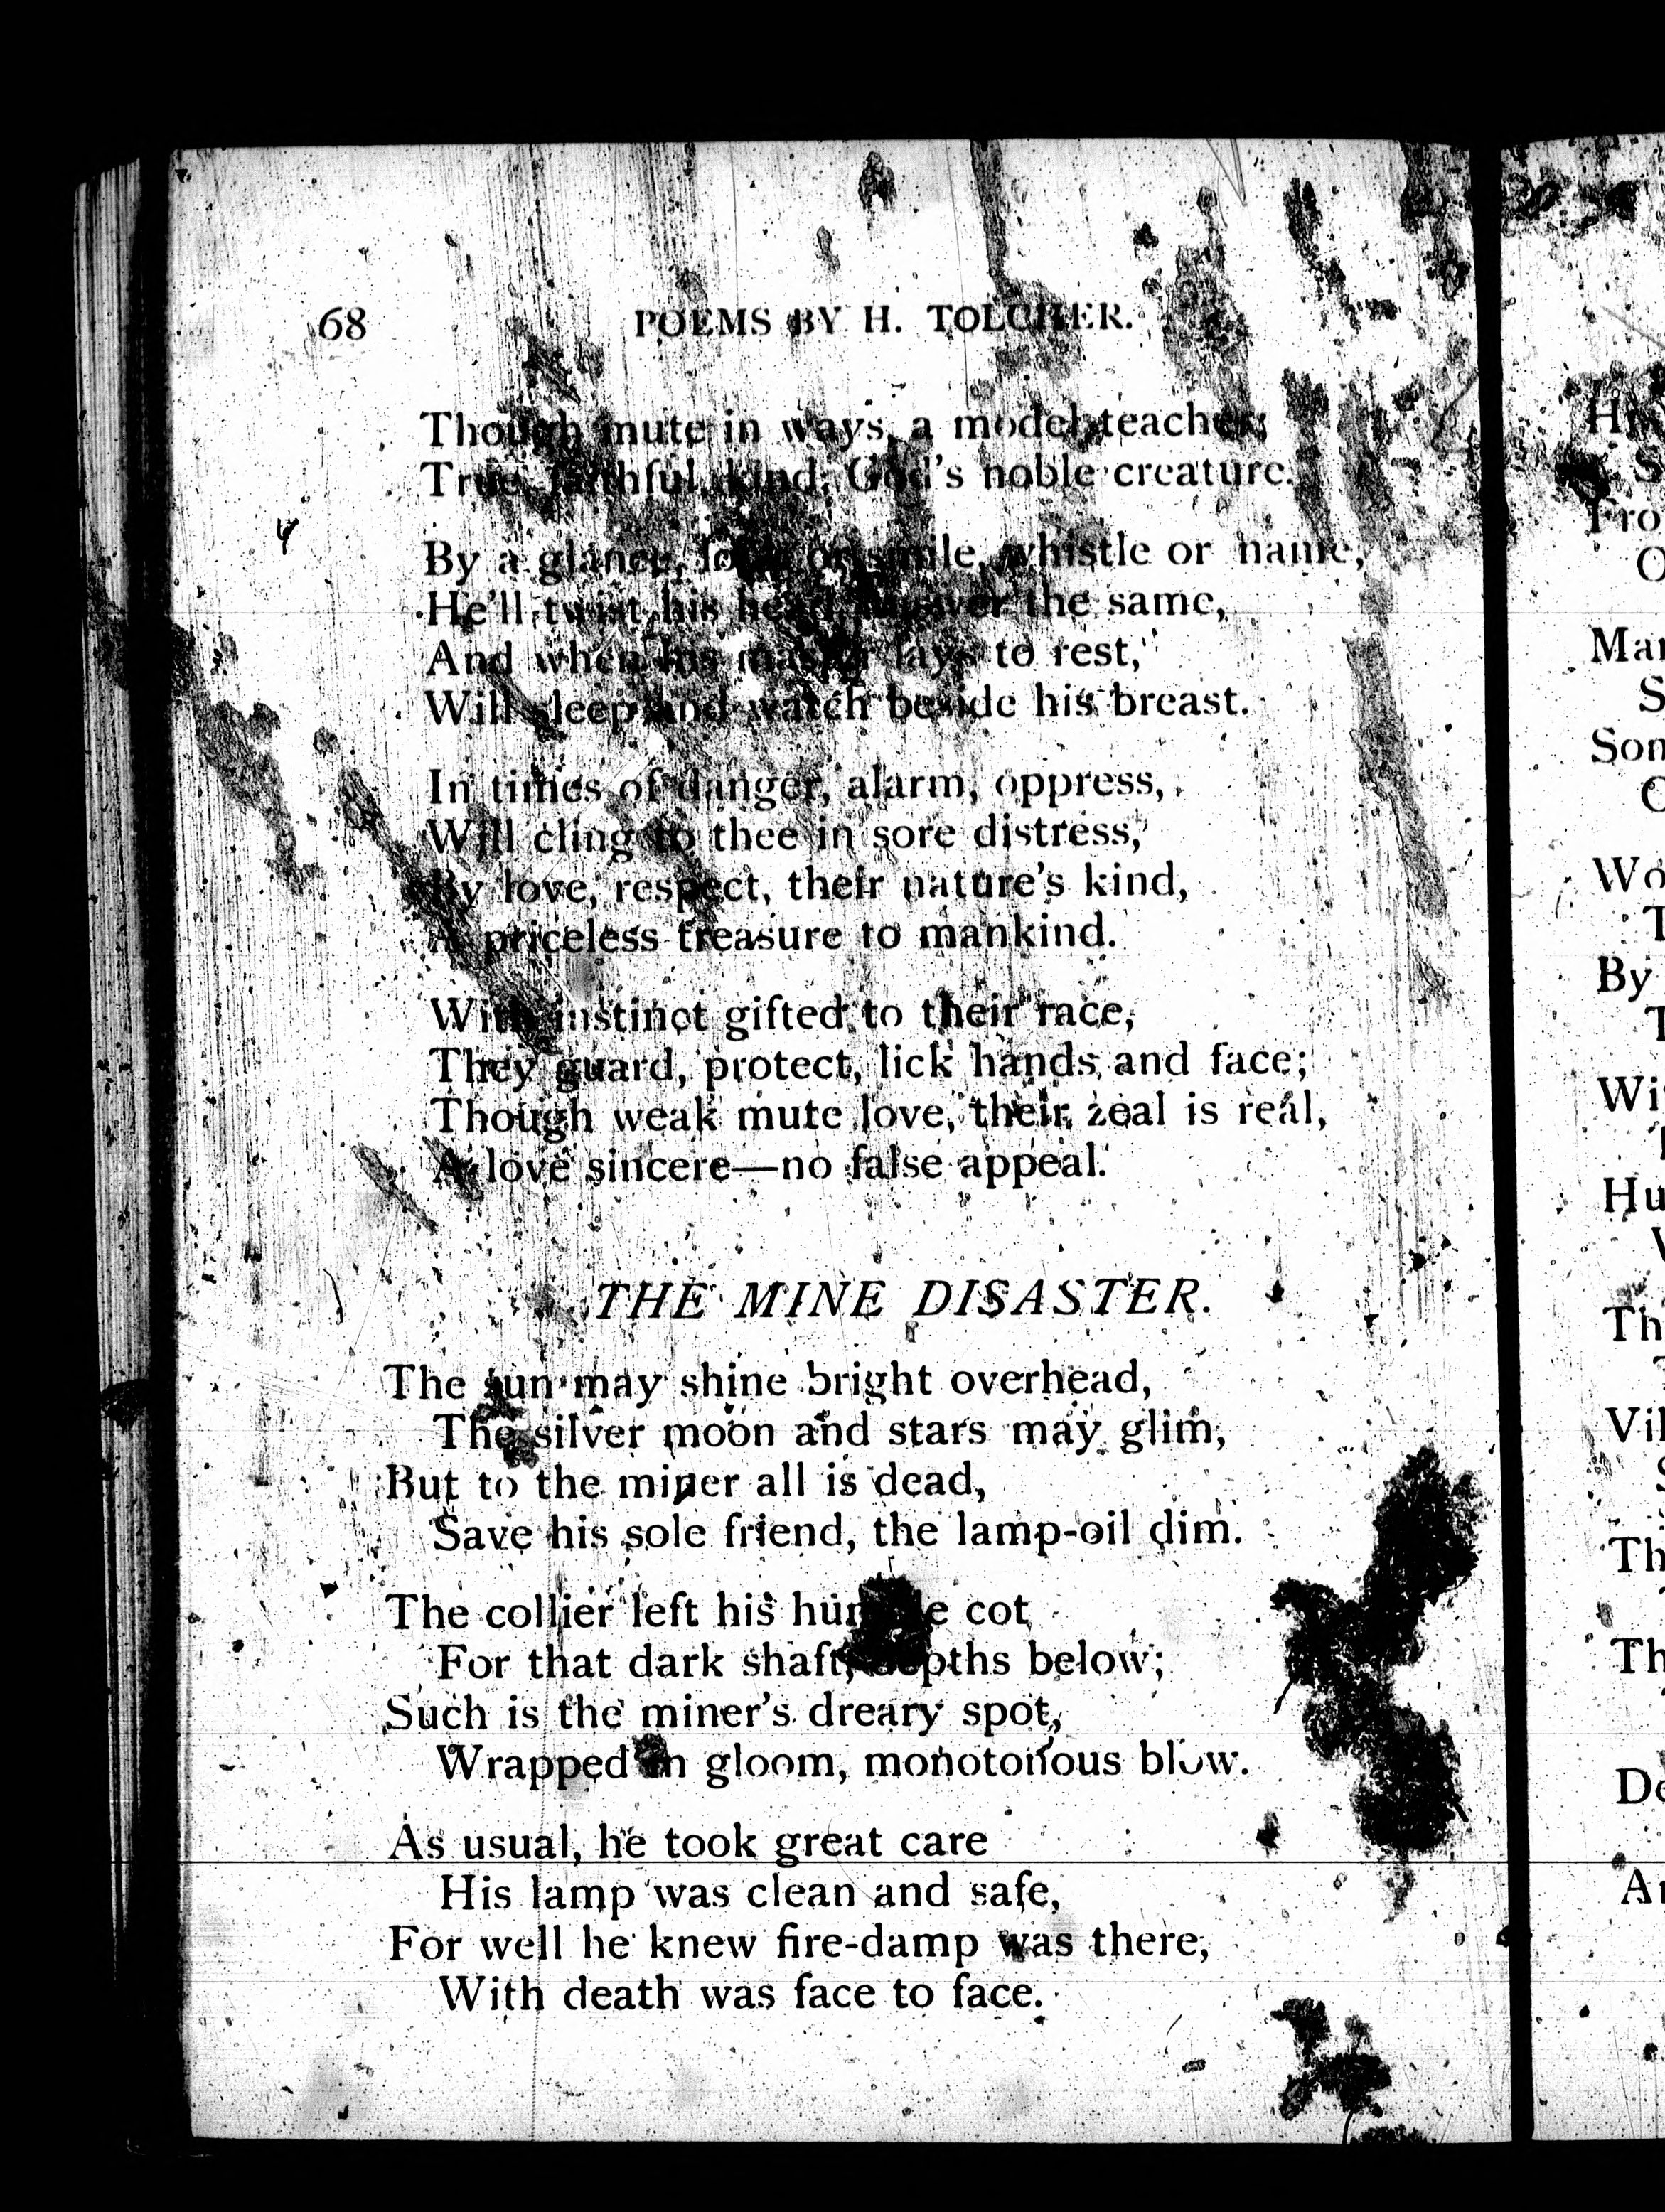 68 POEMS BY H. TOLCHER.
Though mute in ways, a model teacher;
True, faithful, kind; God's noble creature.
By a glance, look or smile, whistle or name,
He'll twist his head, answer the same,
And when his master lays to rest,
Will sleep and watch beside his breast.
In times of danger, alarm, oppress,
Will cling to thee in sore distress,
By love, respect, their nature's kind,
A priceless treasure to mankind.
With instinct gifted to their race,
They guard, protect, lick hands and face;
Though weak mute love, their zeal is real,
A love sincere—no false appeal.
THE MINE DISASTER.
The sun may shine bright overhead,
The silver moon and stars may glim,
But to the miner all is dead,
Save his sole friend, the lamp-oil dim.
The collier left his humble cot
For that dark shaft, depths below;
Such is the miner's dreary spot,
Wrapped in gloom, monotonous blow.
As usual, he took great care
His lamp was clean and safe,
For well he knew fire-damp was there,
With death was face to face.
By